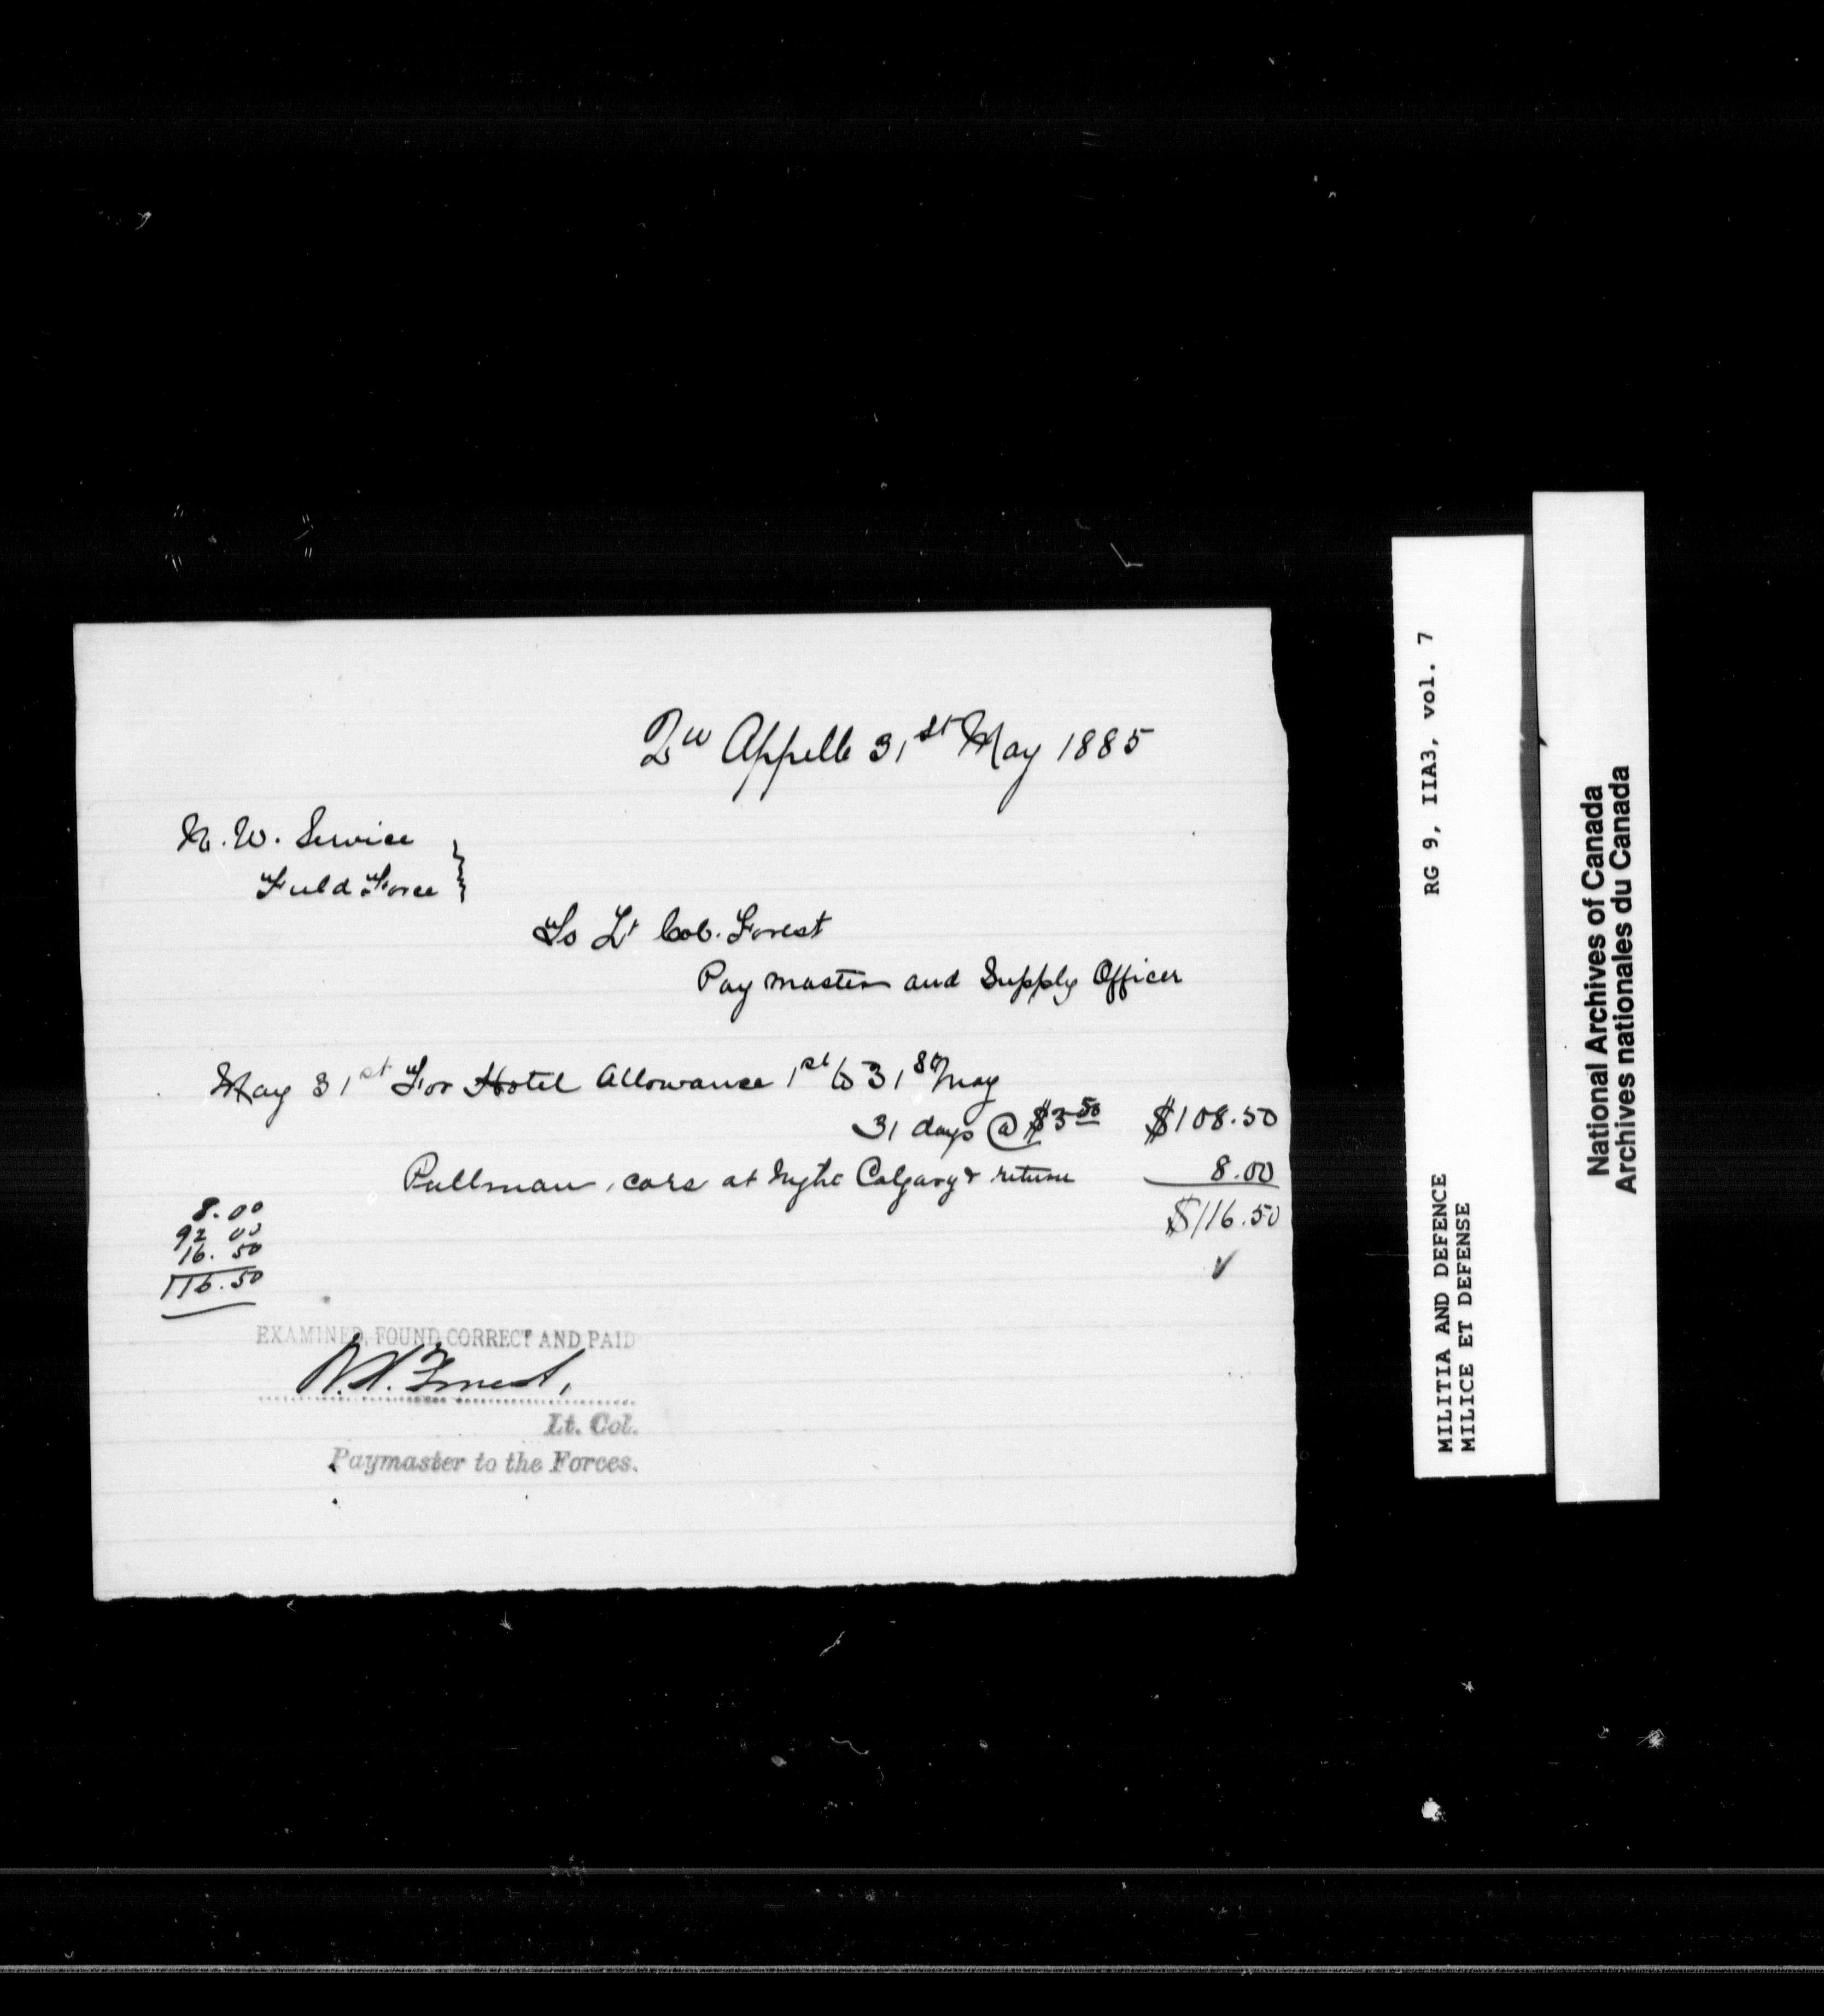 Qu Appelle 31st May 1885
N. W. Service
Field Force
To Lt Col. Forest
Pay master and Supply Officer
May 31st For Hotel Allowance 1st to 31st May
31 days @ $3 50 $108.50
Pullman cars at night Calgary & return 8.00
$116.50
8.00
92 00
16. 50
116.50
EXAMINED, FOUND CORRECT AND PAID
Forest,
Lt. Col.
Paymaster to the Forces.
RG 9, IIA3, vol. 7
MILITIA AND DEFENCE
MILICE ET DEFENSE
National Archives of Canada
Archives nationales du Canada